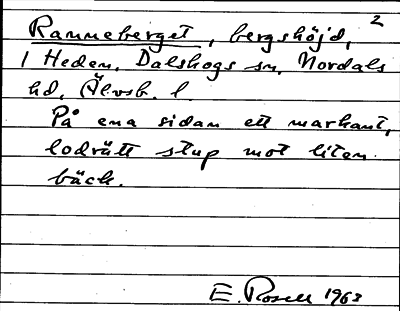 2
Ramneberget, bergshöjd,
1 Heden, Dalskogs sn, Nordals
hd, Älvsb. l.
På ena sidan ett markant,
lodrätt stup mot liten
bäck.
E. Rosell 1963